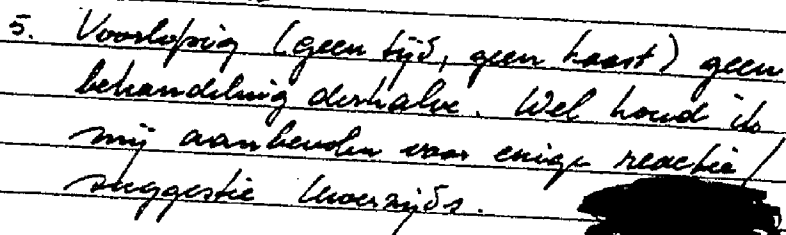 5. Voorlopig (geen tijd, geen haast) geen
behandeling derhalve. Wel houd ik
mij aanbevolen voor enige reactie/
suggestie Uwerzijds.